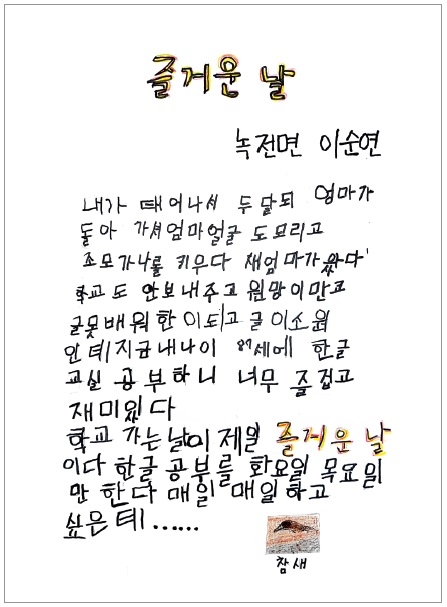 즐거운 날
녹전면 이순연
내가 태어나서 두달되 엄마가
돌아 가셔엄마얼굴 도모리고
조모가나를 키우다 새엄마가왔다
학교도 안보내주고 원망이만고
글못배워한이되고 글이소원
인테지금내나이 87세에 한글
교실 공부하니 너무 즐겁고
재미있다
학교 가는날이제일 즐거운 날
이다 한글공부를 화요일 목요일
만 한다 매일 매일하고
싶은테......
참새